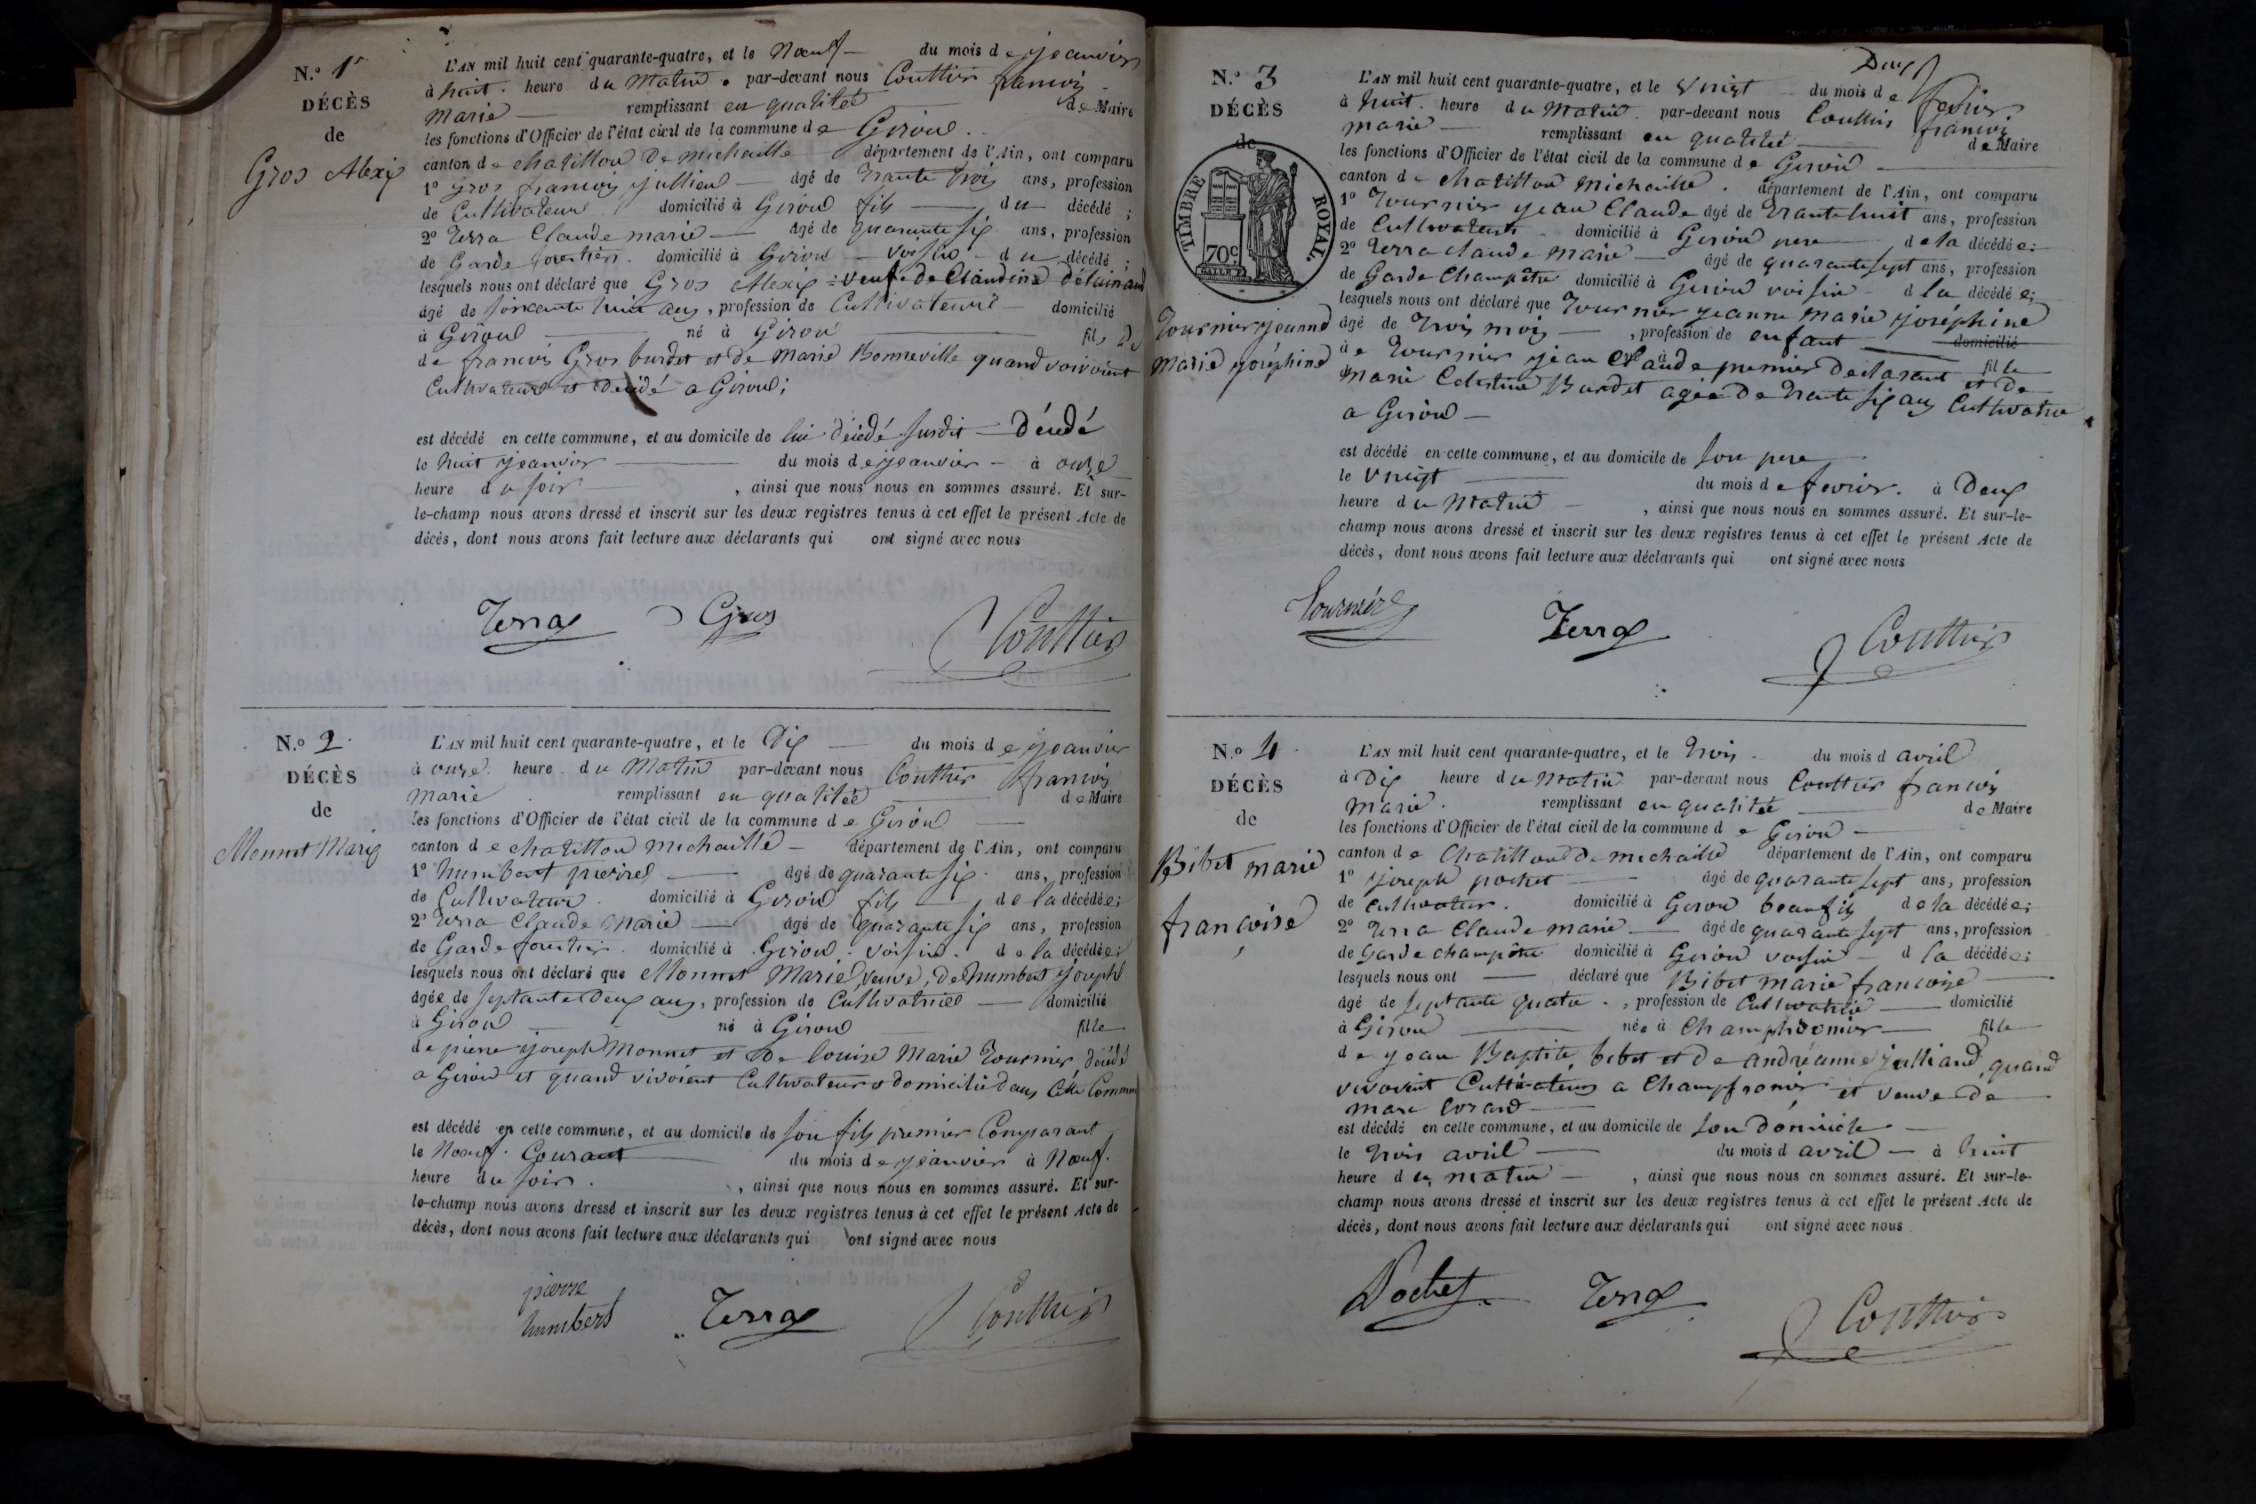 N.o 1er
DÉCÈS
de
Gros Alexis
L'AN mil huit cent quarante-quatre, et le Nœuf du mois de jeanvier
à huit heure du Matin par-devant nous Couttier francois
Marie remplissant en qualitée de Maire
les fonctions d'Officier de l'état civil de la commune de Giron
canton de chatillon De michaille département de l'Ain, ont comparu
1o Gros francois jullien âgé de trante trois ans, profession
de Cultivateur domicilié à Giron fils du décédé ;
2o Terra Claude marie âgé de quarante six ans, profession
de Garde forestier domicilié à Giron voisin du décédé ;
lesquels nous ont déclaré que Gros Alexis veuf de Claudine
âgé de soixante huit ans, profession de Cultivateur domicilié
à Giron né à Giron fils
de francois Gros burdet et de Marie Bonneville quand vivoient
Cultivateurs et décédé a Giron ;
est décédé en cette commune, et au domicile de lui décédé susdit Décédé
le huit jeanvier du mois de jeanvier à onze
heure du soir, ainsi que nous nous en sommes assuré. Et sur-
le-champ nous avons dressé et inscrit sur les deux registres tenus à cet effet le présent Acte de
décès, dont nous avons fait lecture aux déclarants qui ont signé avec nous
Terra Gros Couttier
N.o 2
DÉCÈS
de
Monnet Marie
L'AN mil huit cent quarante-quatre, et le Dix du mois de jeanvier
à onze heure du Matin par-devant nous Couttier francois
Marie remplissant en qualitée de Maire
les fonctions d'Officier de l'état civil de la commune de Giron
canton de chatillon michaille département de l'Ain, ont comparu
1o humbert pierre âgé de quarante six ans, profession
de Cultivateur domicilié à Giron fils de la décédée ;
2o Terra Claude Marie âgé de quarante six ans, profession
de Garde forestier domicilié à Giron voisin de la décédée ;
lesquels nous ont déclaré que Monnet Marie, veuve, De humbert joseph
âgée de septante Deux ans, profession de Cultivatrice domicilié
à Giron né à Giron fille
de pierre joseph Monnet et De louise Marie Tournier décédé
a Giron et quand vivoient Cultivateurs domicilié dans Cette Commune
est décédé en cette commune, et au domicile de son fils premier Comparant
le Nœuf Courant du mois de jeanvier à Nœuf
heure du soir, ainsi que nous nous en sommes assuré. Et sur-
le-champ nous avons dressé et inscrit sur les deux registres tenus à cet effet le présent Acte de
décès, dont nous avons fait lecture aux déclarants qui ont signé avec nous
pierre
humbert Terra Couttier
Deux
N.o 3
DÉCÈS
de
TIMBRE ROYAL
70c
Tournier jeanne
Marie joséphine
L'AN mil huit cent quarante-quatre, et le vningt du mois de fevrier
à huit heure du Matin par-devant nous Couttier francois
marie remplissant en qualitée de Maire
les fonctions d'Officier de l'état civil de la commune de Giron
canton de chatillon michaille département de l'Ain, ont comparu
1o Tournier jean Claude âgé de trante huit ans, profession
de Cultivateur domicilié à Giron pere de la décédée ;
2o Terra claude Marie âgé de quarante sept ans, profession
de Garde Champêtre domicilié à Giron voisin d la décédée ;
lesquels nous ont déclaré que Tournier jeanne marie joséphine
âgé de trois mois, profession de enfant domicilié
à e Tournier jean Claude premier Declarant fille
marie Celestine Burdet agée De trante six ans Cultivatrice et De
a Giron
est décédé en cette commune, et au domicile de son pere
le vningt du mois de fevrier à Deux
heure du Matin, ainsi que nous nous en sommes assuré. Et sur-le-
champ nous avons dressé et inscrit sur les deux registres tenus à cet effet le présent Acte de
décès, dont nous avons fait lecture aux déclarants qui ont signé avec nous
Tournier Terra Couttier
N.o 4
DÉCÈS
de
Bibet marie
françoise
L'AN mil huit cent quarante-quatre, et le trois du mois d avril
à Dix heure du Matin par-devant nous Couttier francois
Marie remplissant en qualitée de Maire
les fonctions d'Officier de l'état civil de la commune de Giron
canton de Chatillon De michaille département de l'Ain, ont comparu
1o joseph pochet âgé de quarante sept ans, profession
de cultivateur domicilié à Giron beaufils de la décédée ;
2o Terra Claude marie âgé de quarante sept ans, profession
de Garde champêtre domicilié à Giron voisin d la décédée ;
lesquels nous ont déclaré que Bibet marie francoise
âgé de septante quatre, profession de Cultivatrice domicilié
à Giron née à Champfromier fille
de jean Baptiste bibet et De andréanne julliand, quand
vivoient Cultivateurs a Champfromier et veuve De
marc
est décédé en cette commune, et au domicile de son Domicile
le trois avril du mois d avril à huit
heure du matin, ainsi que nous nous en sommes assuré. Et sur-le-
champ nous avons dressé et inscrit sur les deux registres tenus à cet effet le présent Acte de
décès, dont nous avons fait lecture aux déclarants qui ont signé avec nous
Pochet Terra Couttier